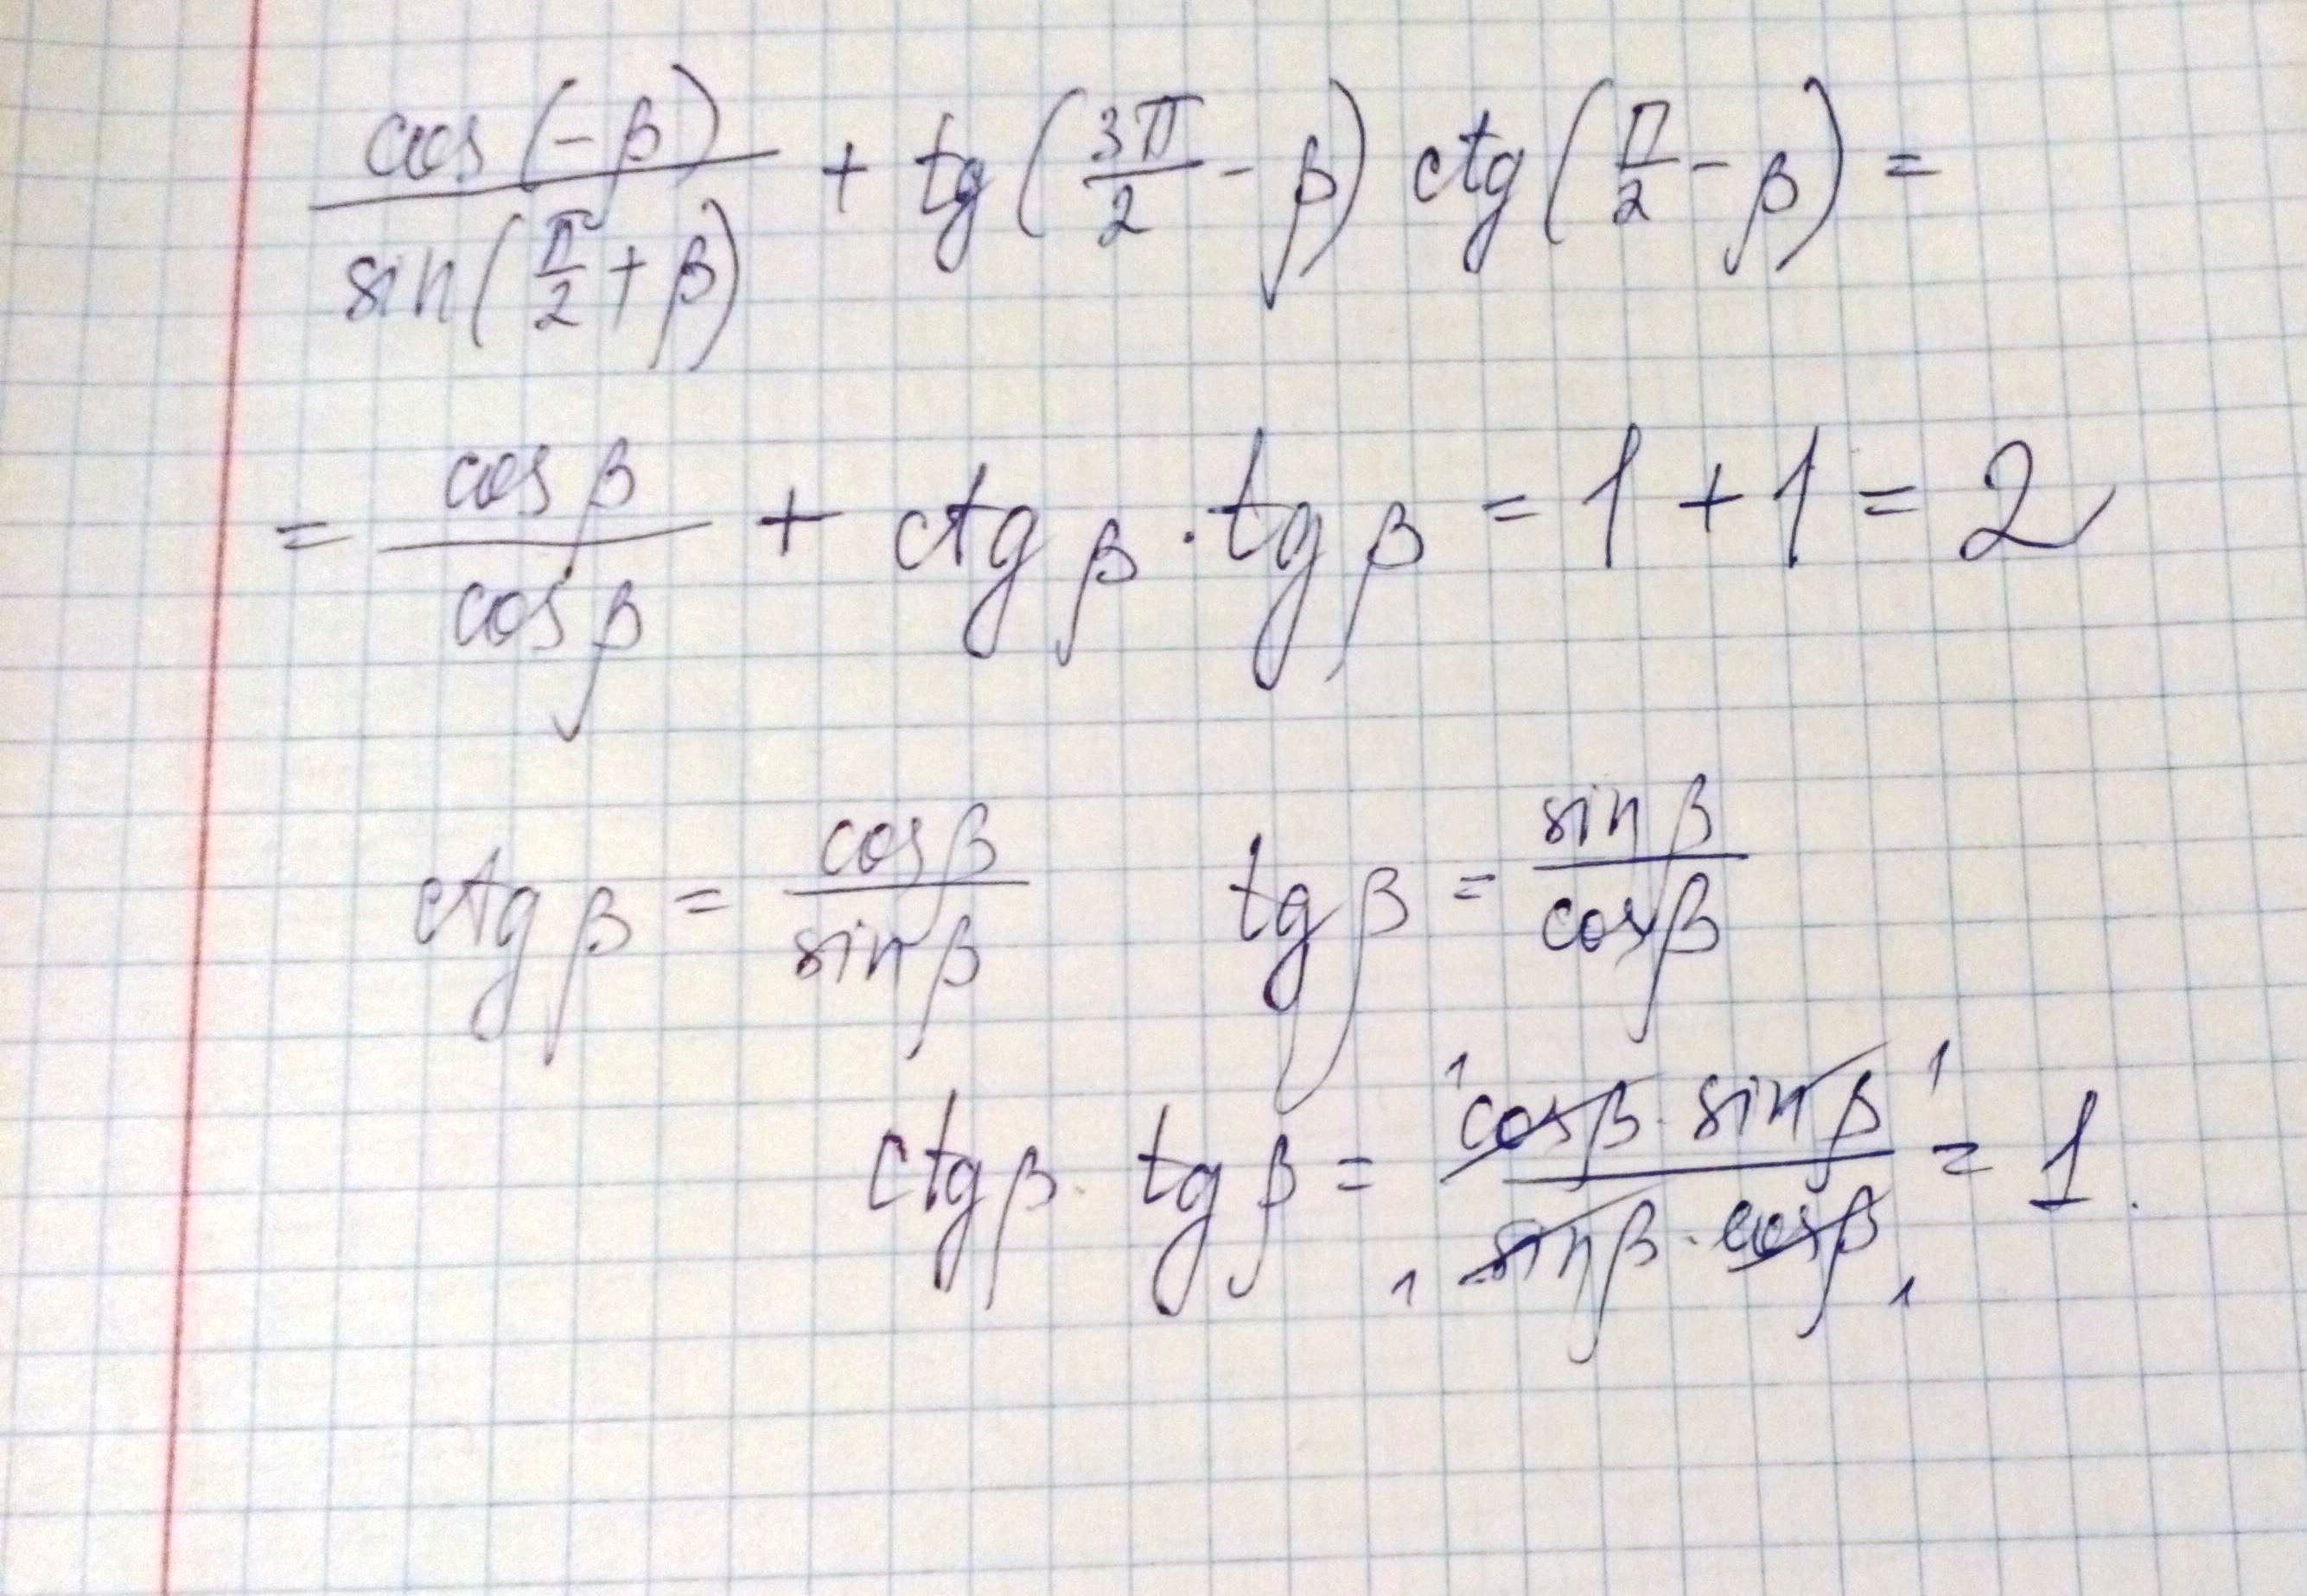 cos(-β)/sin(π/2+β) + tg(3π/2-β) ctg(π/2-β) =
= cosβ/cosβ + ctgβ · tgβ = 1 + 1 = 2
ctgβ = cosβ/sinβ tgβ = sinβ/cosβ
ctgβ · tgβ = ¹cosβ · sinβ¹/₁sinβ · cosβ₁ = 1.